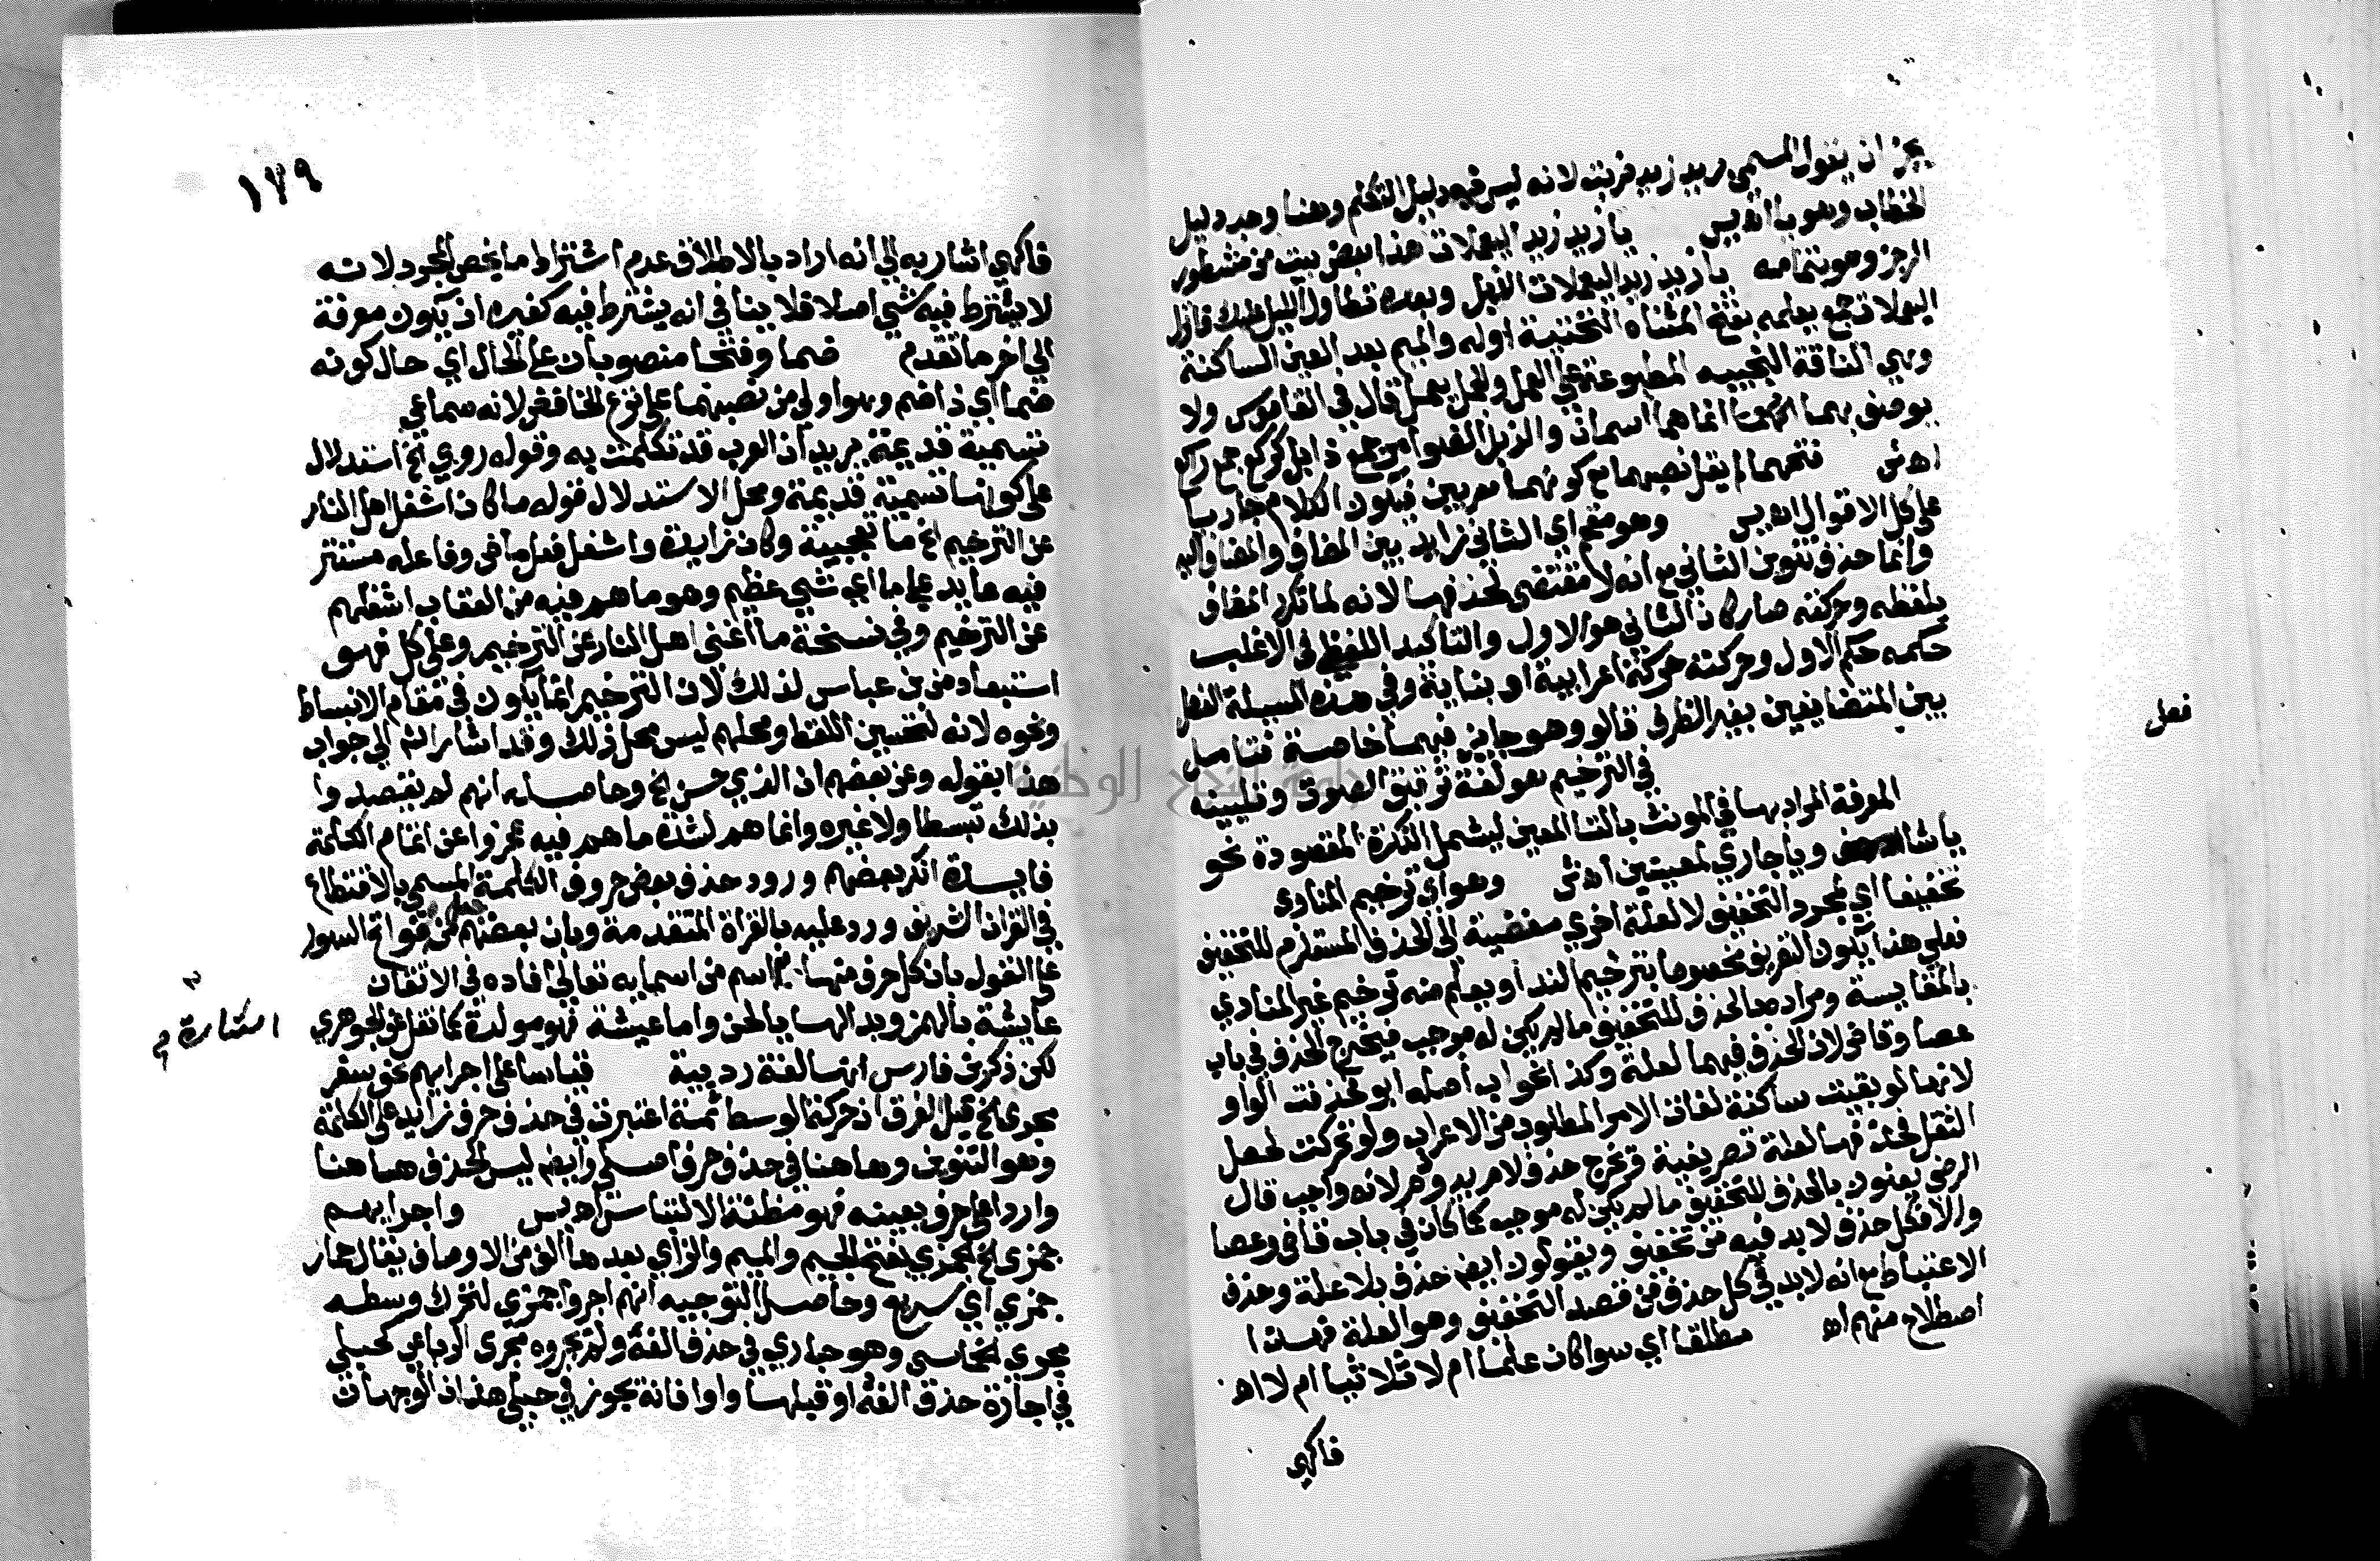 يجز ان يقول المسمى بزيد زيد فربت لانه ليس فيه دليل التكلم وهنا وجد دليل
الخطاب وهو يا اه يس يا زيد زيد اليعملات هذا بعض بيت من مشطور
الرجز وهو بتمامه يا زيد زيد اليعملات الذبل وبعده تطاول الليل عليك فانزل
اليعملات جمع يعلمه بفتح المثناه التحتية اوله والميم بعد العين الساكنة
وهي الناقة النجيبه المطبوعة على العمل والجمل يعمل قال في القاموس ولا
يوصف بهما انما هما اسمان والذبل الضوامر جمع ذابل كركع جمع راكع
اه ش فتحهما لم يقل نصبهما مع كونهما معربين فيكون الكلام جاريا
على كل الاقوال اه يس وهو مقحم اي الثاني زايد بين المضاف والمضاف اليه
وانما حذف تنوين الثاني مع انه لا مقتضى لحذفها لانه لما تكرر المضاف
بلفظه وحركته صار كان الثاني هو الاول والتاكيد اللفظي في الاغلب
حكمه حكم الاول وحركته حركته اعرابية او بنايية وفي هذه المسيلة الفصل
بين المتضايفين بغير الظرف قالو وهو جايز فيهما خاصة فتامل
فعل
في الترخيم هو لغة ترقيق الصوت وتليينه
المعرفة المراد بها في المونث بالتا المعين ليشمل النكرة المقصودة نحو
يا شا ويا جاري لمعينين اه ش وهو اي ترخيم المنادى
تخفيفا اي لمجرد التخفيف لا لعلة اخري مفضية الى الحذف المستلزم للتخفيف
فعلي هذا يكون التعريف مخصوصا بترخيم الندا ويعلم منه ترخيم غير المنادي
بالمقايسة ومراده الحذف للتخفيف ما لم يكن له موجب فيخرج الحذف في باب
عصا وقاض لان الحذف فيهما لعلة وكذا نحو اب اصله ابو فحذفت الواو
لانها لو بقيت ساكنة لفات الامر المطلوب من الاعراب ولو تحركت لحصل
الثقل فحذفها لعلة تصريفية وتخرج حذف لام يد ودم لانه واجب قال
الرضى يعنون بالحذف للتخفيف ما لم يكن له موجب كما كان في باب قاض وعصا
والا فكل حذف لا بد فيه من تخفيف ويقولون ايضا حذف بلا علة وحذف
الاعتباط مع انه لا بد في كل حذف من قصد التخفيف وهو العلة فهذا
اصطلاح منهم اه مطلقا اي سوا كان علما ام لا ثلاثيا ام لا اه
فاكهي
١٧٩
فاكهي اشار به الي انه اراد بالاطلاق عدم اشتراط ما يخص المجرد لا انه
لا يشترط فيه شي اصلا فلا ينافي انه يشترط فيه كغيره ان يكون معرفة
الي اخر ما تقدم ضما وفتحا منصوبان على الحال اي حال كونه
ضما اي ذا ضم وهو اولي من نصبهما على نزع الخافض لانه سماعي
تسمية قديمة يريد ان العرب قد تكلمت به وقوله روي الخ استدلال
على كونها تسمية قديمة ومحل الاستدلال قوله ما كان اشغل اهل النار
عن الترخيم الخ ما تعجبية وكان زايدة واشغل فعل ماض وفاعله مستتر
فيه عايد على ما اي شي عظيم وهو ما هم فيه من العقاب اشغلهم
عن الترخيم وفي نسخة ما اغنى اهل النار عن الترخيم وعلى كل فهو
استبعاد من بن عباس لذلك لان الترخيم انما يكون في مقام الانبساط
ونحوه لانه لتحسين اللفظ ومحلهم ليس محل ذلك وقد اشار الش الي جواب
هذا بقوله وعن بعضهم ان الذي حسن الخ وحاصله انهم لم يقصدوا
بذلك تبسطا ولا غيره وانما هم لشدة ما هم فيه عجزوا عن اتمام الكلمة
فايدة انكر بعضهم ورود حذف بعض حروف الكلمة المسمى بالاقتطاع
في القران الشريف ورد عليه بالقراة المتقدمة وبان بعضهم جعل من فواتح السور
على القول بان كل حرف منها اسم من اسمايه تعالى افاده في الاتقان
عايشة بالهمز وبدالها يا لحن واما عيشة فهو مولدة كما نقل عن الجوهري
لكن ذكر بن فارس انها لغة رديية قياسا على اجرايهم نحو سقر
مجرى الخ قيل الفرق ان حركة الوسط ثمة اعتبرت في حذف حرف زايد على الكلمة
وهو التنوين وها هنا في حذف حرف اصلي رايضا ليس الحذف ها هنا
واردا على حرف بعينه فهو مظنة الالتباس اه يس واجرايهم
جمزى الخ الجمزي بفتح الجيم والميم والزاي بعدها الف من الاوصاف يقال حمار
جمزي اي سريع وحاصل التوجيه انهم اجروا جمزي لتحرك وسطه
مجري الخماسي وهو حباري في حذف الفه ولم يجروه مجرى الرباعي كحبلي
في اجازة حذف الفه او قبلها واوا فانه يجوز في حبلى هذان الوجهان